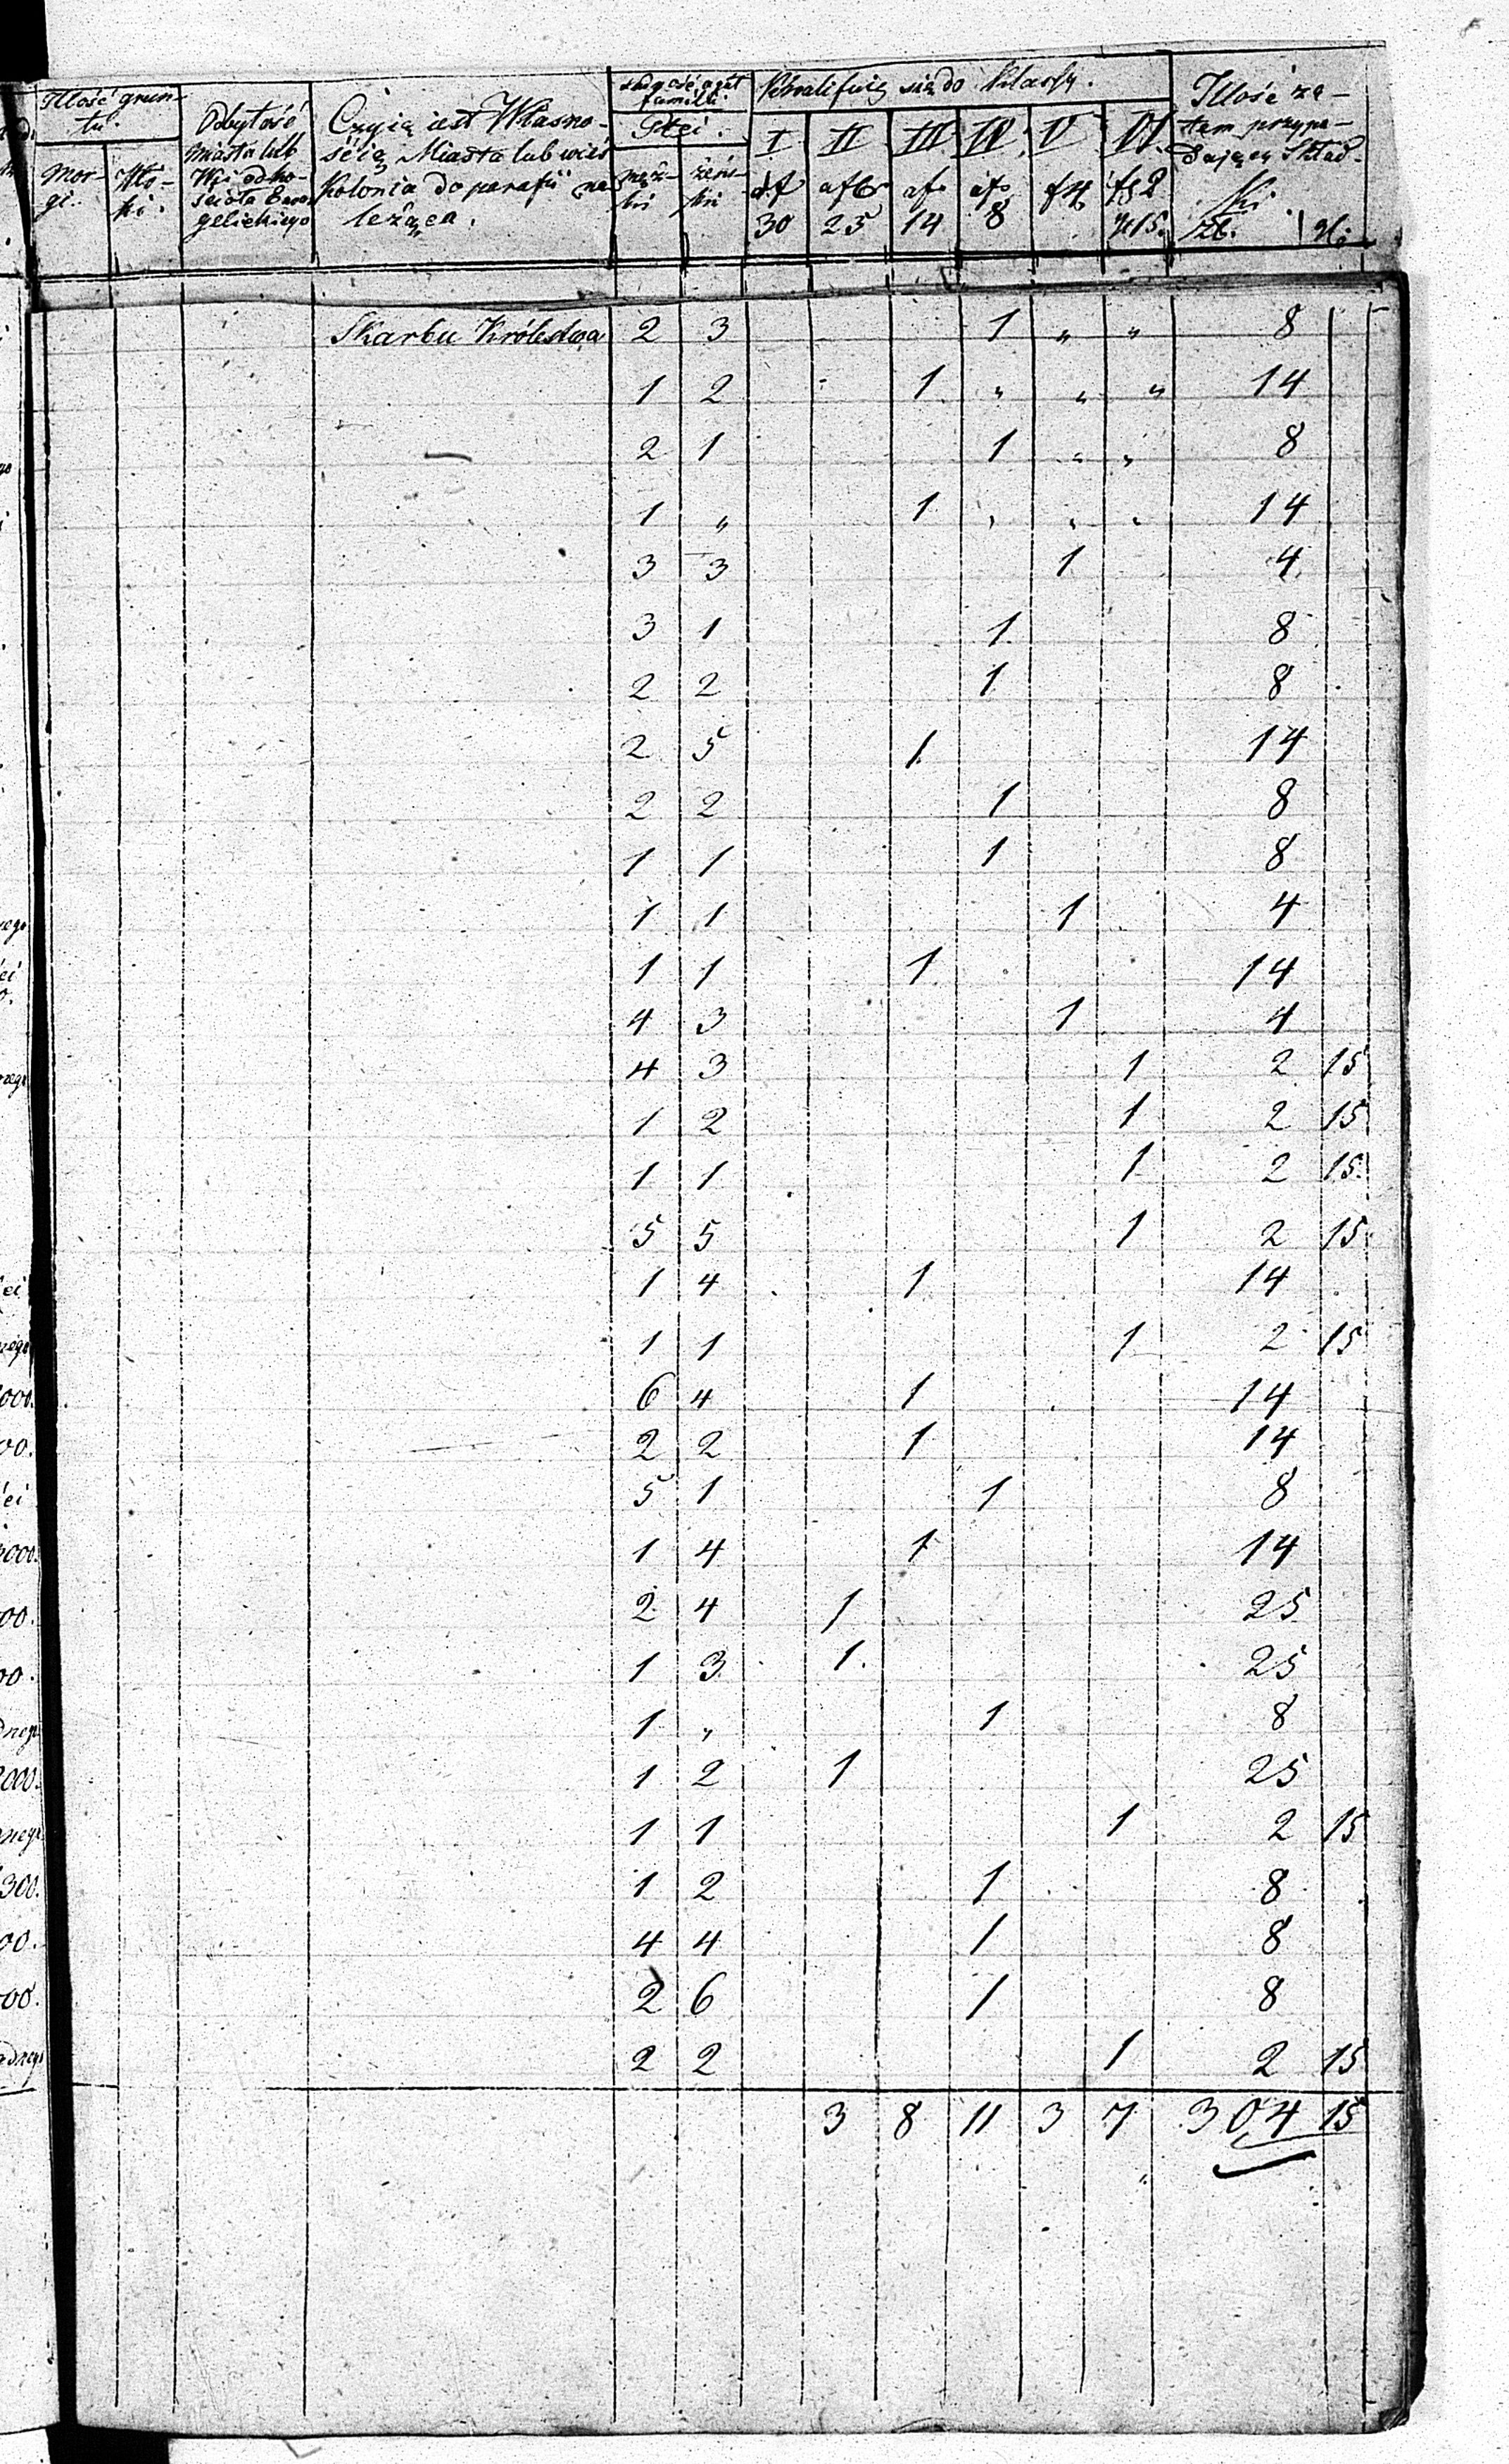 Illość grun-
tu.
Mor-
gi.
Odłyłość
Miasta lub
Wsi od ko-
ścioła Ewan
gelickiego
Czyią iest Własno-
ścią Miasta lub wieś
Kolonia do parafii na
leżąca.
familii.
Płci.
męz-
kri
żeńs-
kri
Kwalifuią się do Klassy.
I
30
II
25
III
14
IV
8
V
f 4
VI.
f 2
15.
Illość za-
tem przypa-
daiącey Skład-
ki
zł. gr
Skarbu Królestwa 2 3 1 " " 8
1 2 1 " " " 14
2 1 1 " " 8
1 " 1 " " " 14
3 3 1 4
3 1 1 8
2 2 1 8
2 5 1 14
2 2 1 8
1 1 1 8
1 1 1 4
1 1 1 14
4 3 1 4
4 3 1 2 15
1 2 1 2 15
1 1 1 2 15
5 5 1 2 15
1 4 1 14
1 1 1 2 15
6 4 1 14
2 2 1 14
5 1 1 8
1 4 1 14
2 4 1 25
1 3 1 25
1 " 1 8
1 2 1 25
1 1 1 2 15
1 2 1 8
4 4 1 8
2 6 1 8
2 2 1 2 15
3 8 11 3 7 304 15